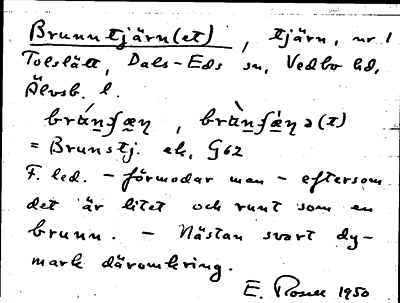 Brunntjärn(et), tjärn, nr 1
Tolslätt, Dals-Eds sn, Vedbo hd,
Älvsb. l.
= Brunstj. ek. G62
F. led. – förmodar man – eftersom
det är litet och runt som en
brunn. – Nästan svart dy-
mark däromkring.
E. 1950